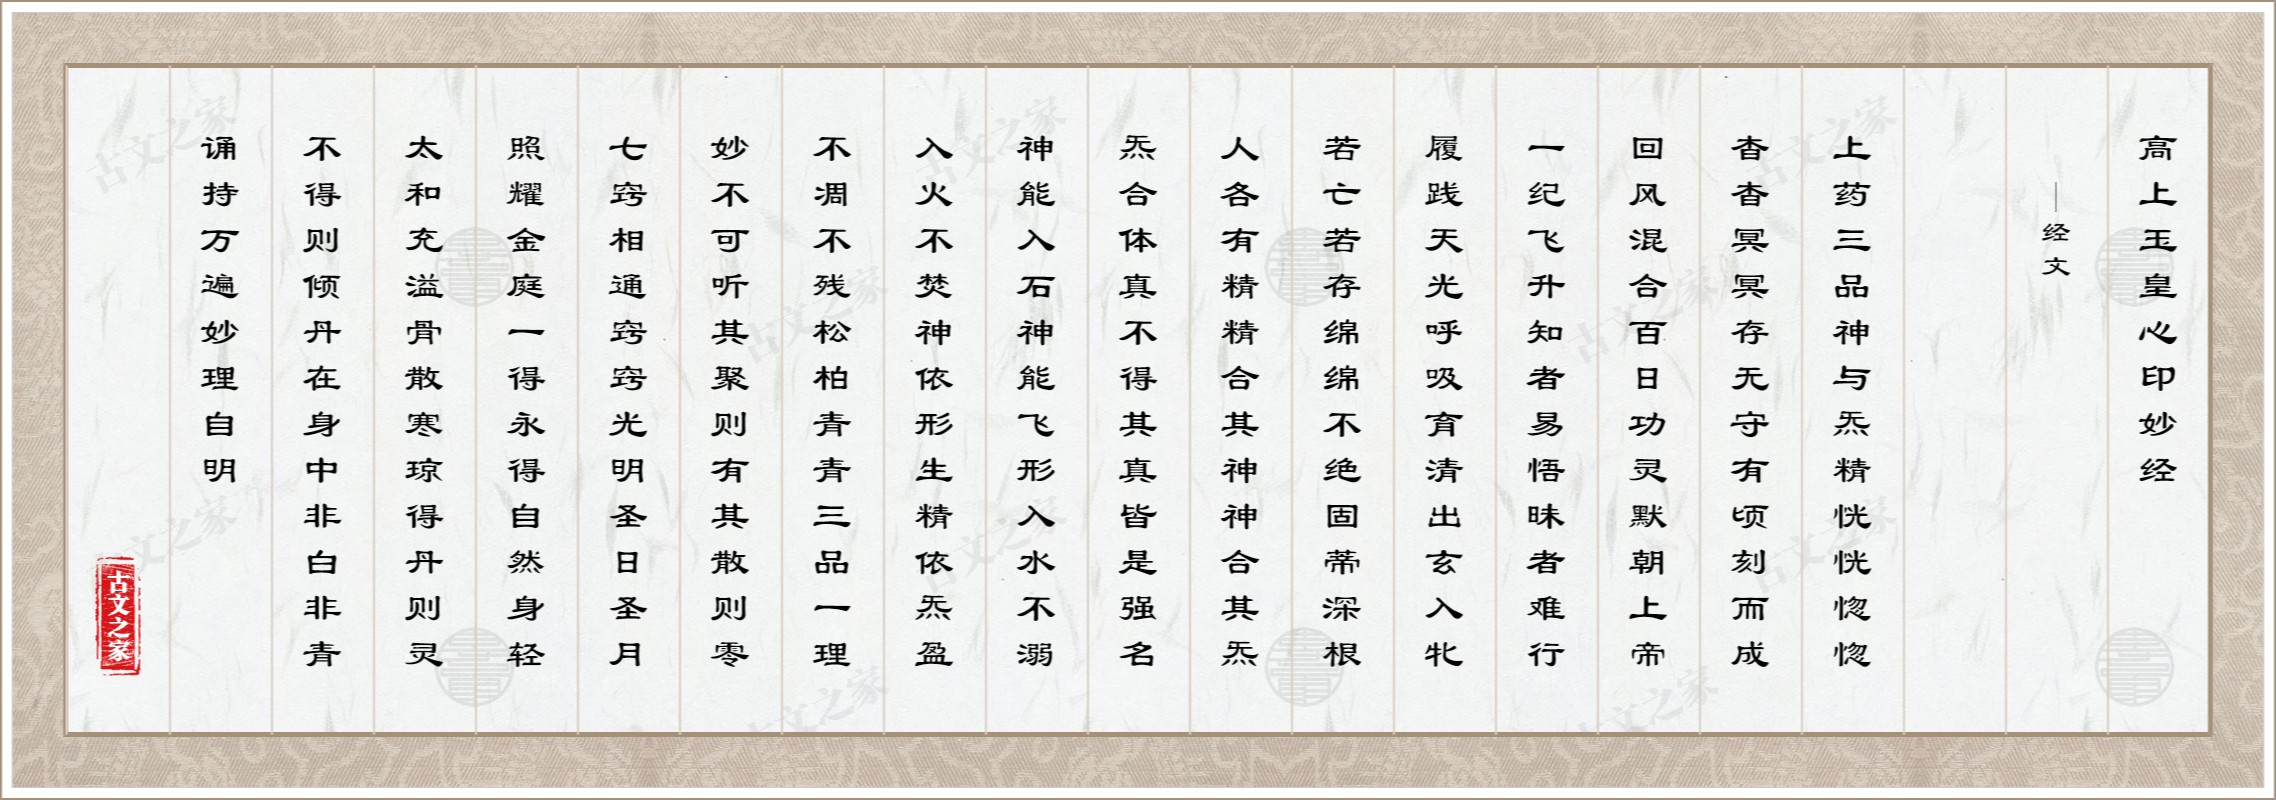 高上玉皇心印妙经
——经文
上药三品神与炁精恍恍惚惚
杳杳冥冥存无守有顷刻而成
回风混合百日功灵默朝上帝
一纪飞升知者易悟昧者难行
履践天光呼吸育清出玄入牝
若亡若存绵绵不绝固蒂深根
人各有精精合其神神合其炁
炁合体真不得其真皆是强名
神能入石神能飞形入水不溺
入火不焚神依形生精依炁盈
不凋不残松柏青青三品一理
妙不可听其聚则有其散则零
七窍相通窍窍光明圣日圣月
照耀金庭一得永得自然身轻
太和充溢骨散寒琼得丹则灵
不得则倾丹在身中非白非青
诵持万遍妙理自明
古文之家